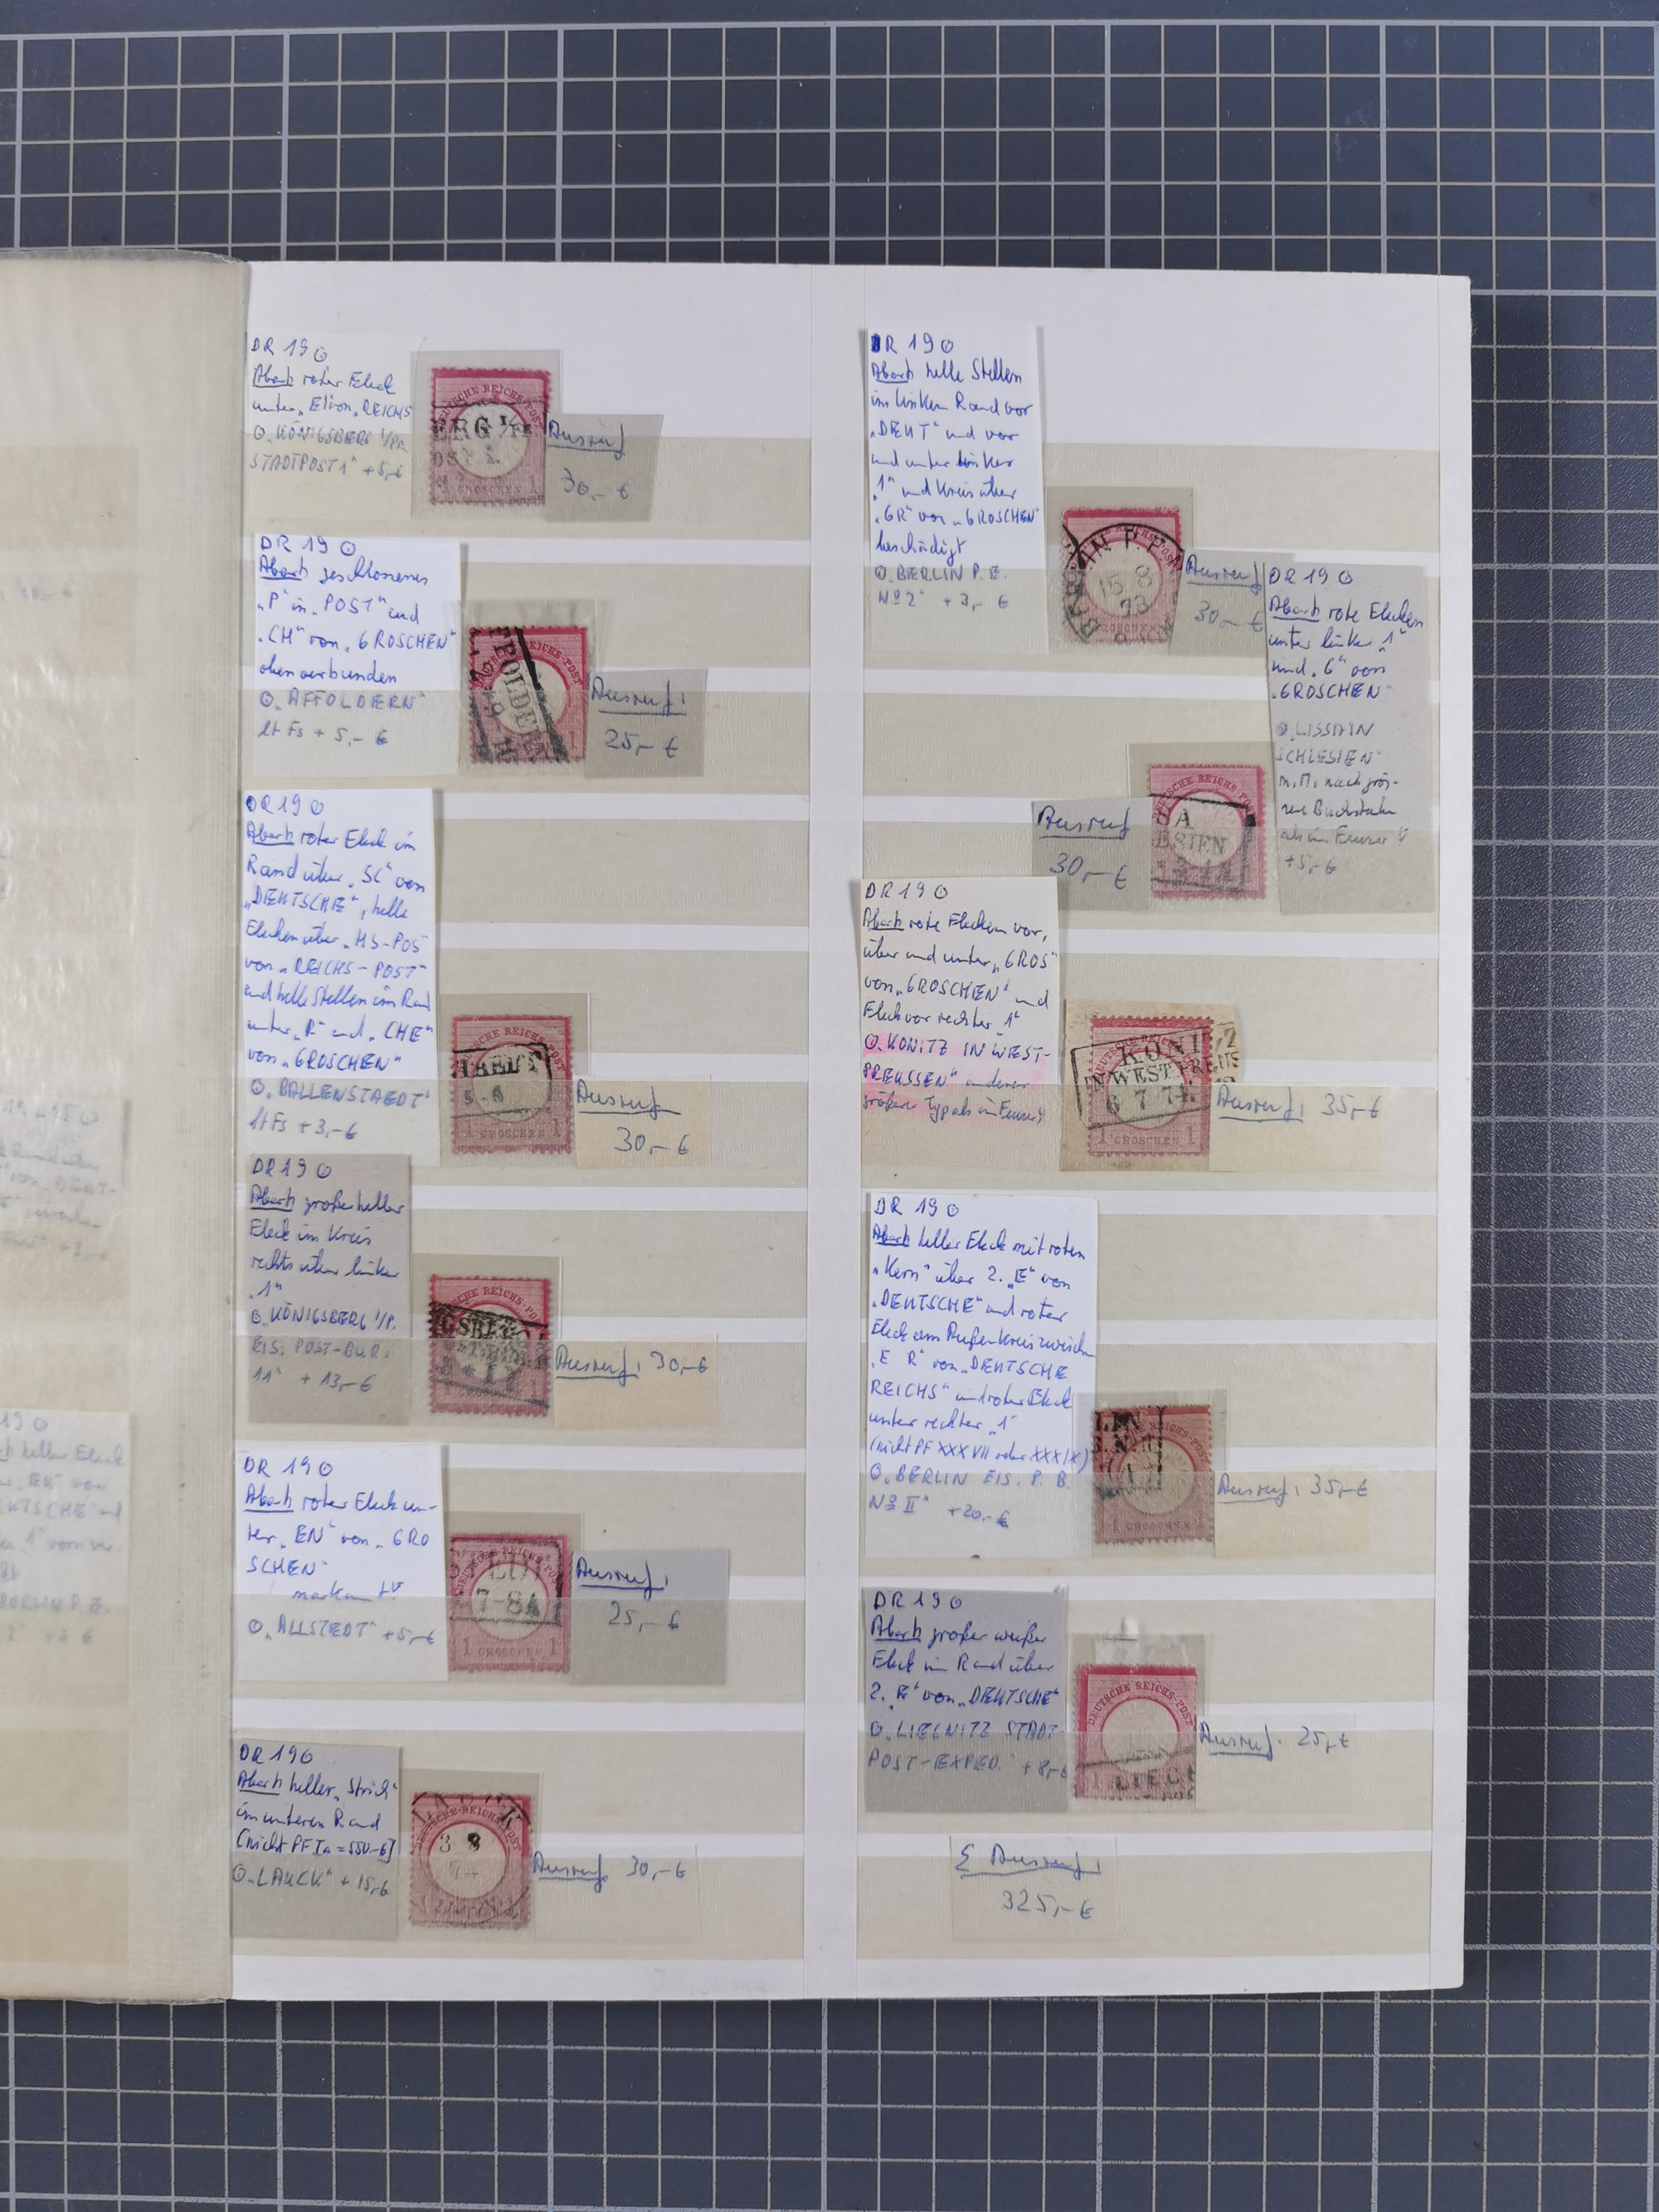 DR 19 ⊙
Abart roter Fleck
unter "E" von "REICHS
⊙ "KÖNIGSBERG I/PR.
STADTPOST 1" + 5,- €
ERG I/PR
OST 1.
GROSCHEN 1
Ausruf
30,- €
DR 19 ⊙
Abart geschlossenes
"P" in "POST" und
"CH" von "GROSCHEN"
oben verbunden
⊙ "AFFOLDERN"
lt Fs + 5,- €
FOLDER
REICHS-POST
Ausruf:
25,- €
DR 19 ⊙
Abart roter Fleck im
Rand über "SC" von
"DEUTSCHE", helle
Flecken über "HS-POS"
von "REICHS-POST"
und helle Stellen im Rand
unter "R" und "CHE"
von "GROSCHEN"
⊙ "BALLENSTAEDT"
lt Fs + 3,- €
TAEDT
1 GROSCHEN 1
Ausruf
30,- €
DR 19 ⊙
Abart großer heller
Fleck im Kreis
rechts über linker
"1"
⊙ "KÖNIGSBERG I/P.
EIS. POST-BUR.
11" + 13,- €
GSBER
Ausruf: 30,- €
DR 19 ⊙
Abart roter Fleck un-
ter "EN" von "GRO
SCHEN"
markant!
⊙ "ALLSTEDT" + 5,- €
7-8A
1 GROSCHEN 1
Ausruf:
25,- €
DR 19 ⊙
Abart heller "Strich"
im unteren Rand
(nicht PF I a = 550,- €)
⊙ "LAUCK" + 15,- €
3 8
74
Ausruf. 30,- €
DR 19 ⊙
Abart helle Stellen
im linken Rand vor
"DEUT" und vor
und unter linker
"1" und Kreis über
"GR" von "GROSCHEN"
beschädigt
⊙ "BERLIN P.E.
No 2" + 3,- €
BERLIN P.E
15 8
73
Ausruf
30,- €
DR 19 ⊙
Abart rote Flecken
unter linker "1"
und "G" von
"GROSCHEN"
⊙ "LISSA IN
SCHLESIEN"
m.M. noch grös-
sere Buchstaben
als im Feuser!
+ 5,- €
SA
ESIEN
Ausruf
30,- €
DR 19 ⊙
Abart rote Flecken vor,
über und unter "GROS"
von "GROSCHEN" und
Fleck vor rechter "1"
⊙ "KONITZ IN WEST-
PREUSSEN" anderer
größerer Typ als im Feuser!
KONI
IN WESTPREUS
6 7 74.
1 GROSCHEN 1
Ausruf: 35,- €
DR 19 ⊙
Abart heller Fleck mit rotem
"Kern" über 2. "E" von
"DEUTSCHE" und roter
Fleck am Außenkreis zwischen
"E R" von "DEUTSCHE
REICHS" und roter Fleck
unter rechter "1"
(nicht PF XXXVII oder XXXIX)
⊙ "BERLIN EIS. P. B.
No II" + 20,- €
LIN
1 GROSCHEN 1
Ausruf: 35,- €
DR 19 ⊙
Abart großer weißer
Fleck im Rand über
2. "E" von "DEUTSCHE"
⊙ "LIEGNITZ STADT-
POST-EXPED." + 8,- €
DEUTSCHE REICHS-POST
LIEG
Ausruf. 25,- €
Σ Ausruf:
325,- €